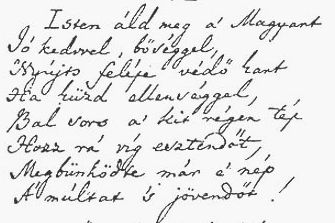 Isten áld meg a' Magyart
Jó kedvvel, bőséggel,
Nyújts feléje védő kart
Ha küzd ellenséggel,
Bal sors a' kit régen tép
Hozz rá víg esztendőt,
Megbünhődte már e' nép
A' múltat 's jövendőt!